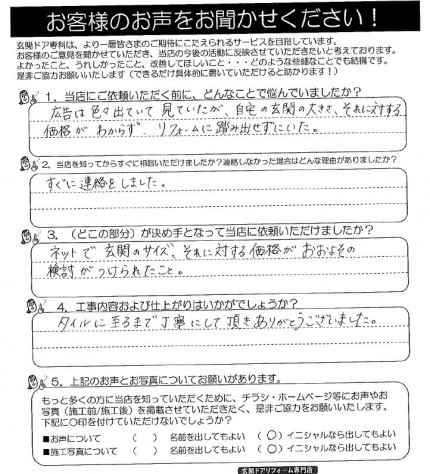 お客様のお声をお聞かせください！
玄関ドア専科は、より一層皆さまのご期待にこたえられるサービスを目指しています。
お客様のご意見を聞かせていただき、当店の今後の活動に反映させていただきたいと考えております。
よかったこと、うれしかったこと、改善してほしいこと・・・どのような些細なことでも結構です。
是非ご協力お願いいたします（できるだけ具体的に書いていただけると助かります！）
1．当店にご依頼いただく前に、どんなことで悩んでいましたか？
広告は色々出ていて見ていたが、自宅の玄関の大きさ、それに対する
価格がわからず、リフォームに踏み出せずにいた。
2．当店を知ってからすぐに相談いただけましたか？連絡しなかった場合はどんな理由がありましたか？
すぐに連絡をしました。
3．（どこの部分）が決め手となって当店に依頼いただけましたか？
ネットで玄関のサイズ、それに対する価格がおおよその
検討がつけられたこと。
4．工事内容および仕上がりはいかがでしょうか？
タイルに至るまで丁寧にして頂きありがとうございました。
5．上記のお声とお写真についてお願いがあります。
もっと多くの方に当店を知っていただくために、チラシ・ホームページ等にお声やお
写真（施工前/施工後）を掲載させていただきたく、是非ご協力をお願いいたします。
下記に〇印を付けていただけないでしょうか？
■お声について （ ） 名前を出してもよい （〇）イニシャルなら出してもよい
■施工写真について （ ） 名前を出してもよい （〇）イニシャルなら出してもよい
玄関ドアリフォーム専門店